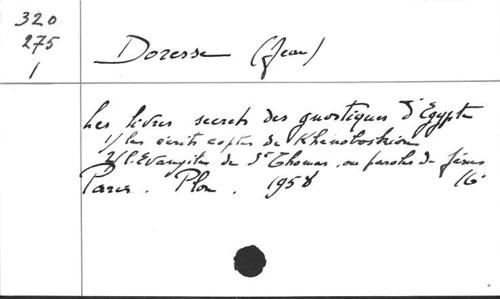 320
275
1
Doresse (Jean)
Les livres secrets des gnostiques d'Egypte
1/ les écrits coptes de Khenoboskion
2/ l'Evangile de St Thomas, ou paroles de Jésus
Paris. Plon. 1958 16°